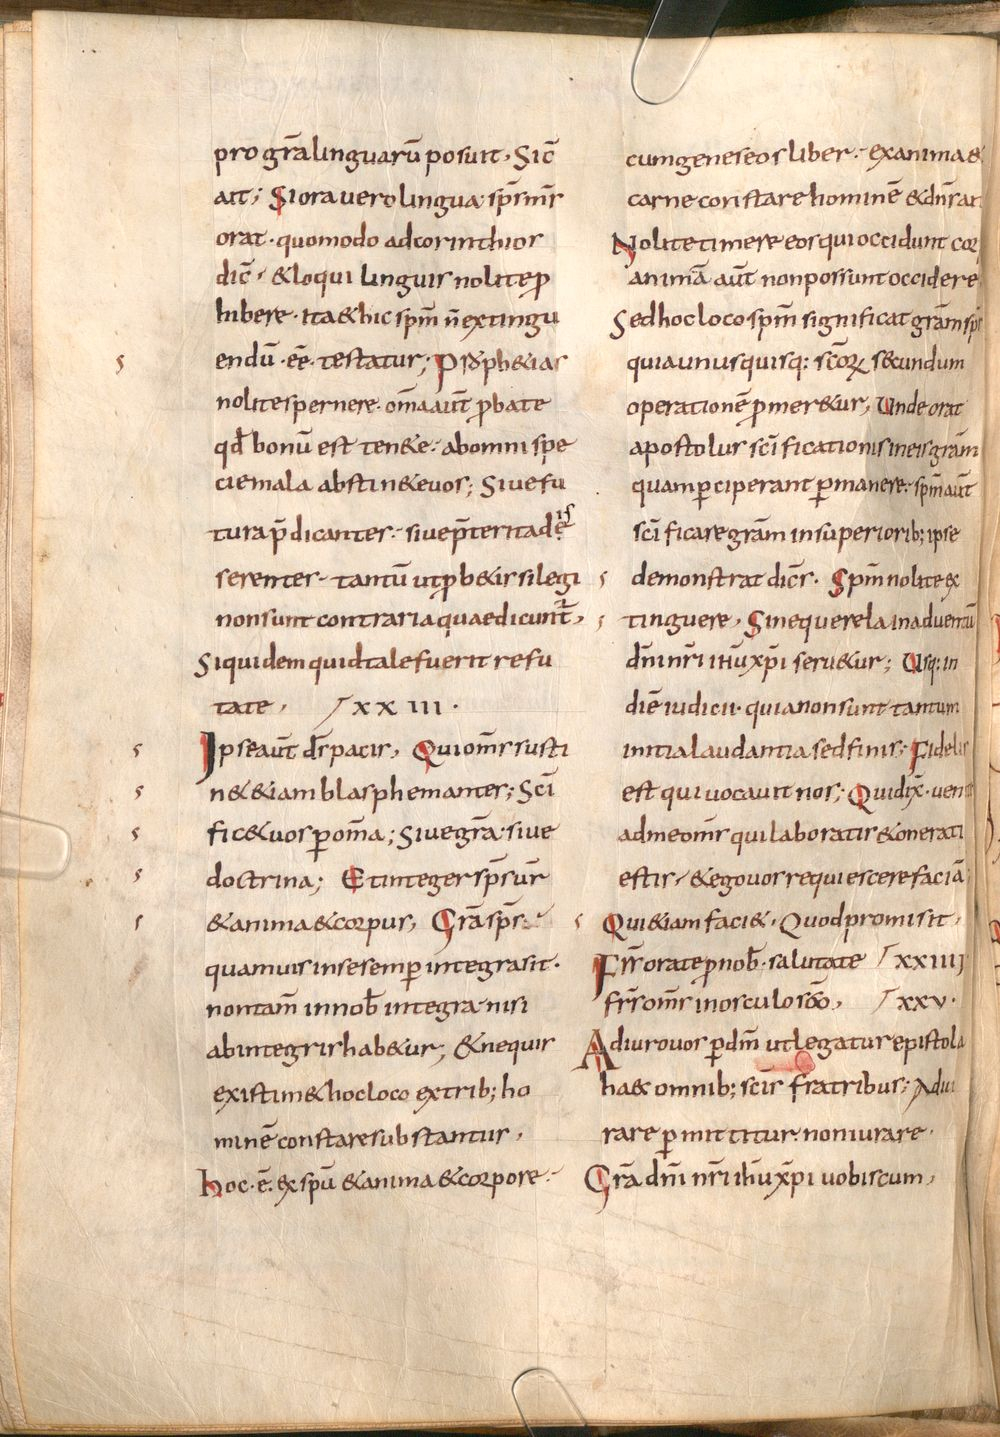 pro gr̄a linguarū posuit, Sic̄
ait; Si oravero lingua sp̄s m̄s
orat. quomodo ad corinthios
dic̄. & loqui linguis nolite ꝓ
hibere. Ita & hic sp̄m n̄ extingu
endū .eē. testatur; Proph&ias
nolite spernere. om̄a aut̄ ꝓbate
qd̄ bonū est ten&e. ab omni spe
cie mala abstin&e vos; Sive fu
tura p̄dicantes. sive p̄terita dis
serentes. tantū ut ꝓb&is si legi
non sunt contraria quae dicunt̄,
Si quidem quid tale fuerit refu
tate, XXIII.
Ipse aut̄ ds̄ pacis, Qui om̄s susti
n& &iam blasphemantes; Sc̄i
fic& vos ꝑ om̄a; Sive gr̄a. sive
doctrina; Et integer sp̄s vr̄
& anima & corpus, Gr̄a sp̄s
quamvis in se semꝑ integra sit.
non tam̄ in nob̄ integra nisi
ab integris hab&ur; & nequis
existim& hoc loco ex trib; ho
minē constare substantiis,
hoc .ē. ex sp̄u & anima & corpore.
cum geneseos liber. ex anima &
carne constare hominē & dn̄s ait
Nolite timere eos qui occidunt cor
animā aut̄ non possunt occidere
Sed hoc loco sp̄m significat gr̄am sp̄s
quia unusquisq: sc̄oꝝ secundum
operationē ꝓmer&ur, Unde orat
apostolus sc̄ificationis in eis gr̄am
quam ꝑciperant ꝑmanere. sp̄m aut̄
sc̄ificare gr̄am in superiorib; ipse
demonstrat dic̄s. Sp̄m nolite ex
tinguere, Sine querela in adventū
dn̄i nr̄i ih̄u xp̄i serv&ur; Usq: in
diē iudicii. quia non sunt tantum
initia laudantia sed finis. Fidelis
est qui vocavit nos; Qui dix̄. venite
ad me om̄s qui laboratis & onerati
estis. & ego vos requiescere faciā
Qui &iam faci&. Quod promisit,
Frs̄ orate ꝓ nob̄. salutate XXIIII
frs̄ om̄s in osculo sc̄o, XXV.
Adiuro vos ꝑ dm̄ ut legatur epistola
haec omnib; sc̄is fratribus; Adiu
rare ꝑmittitur. non iurare.
Gr̄a dn̄i nr̄i ih̄u xp̄i vobiscum,